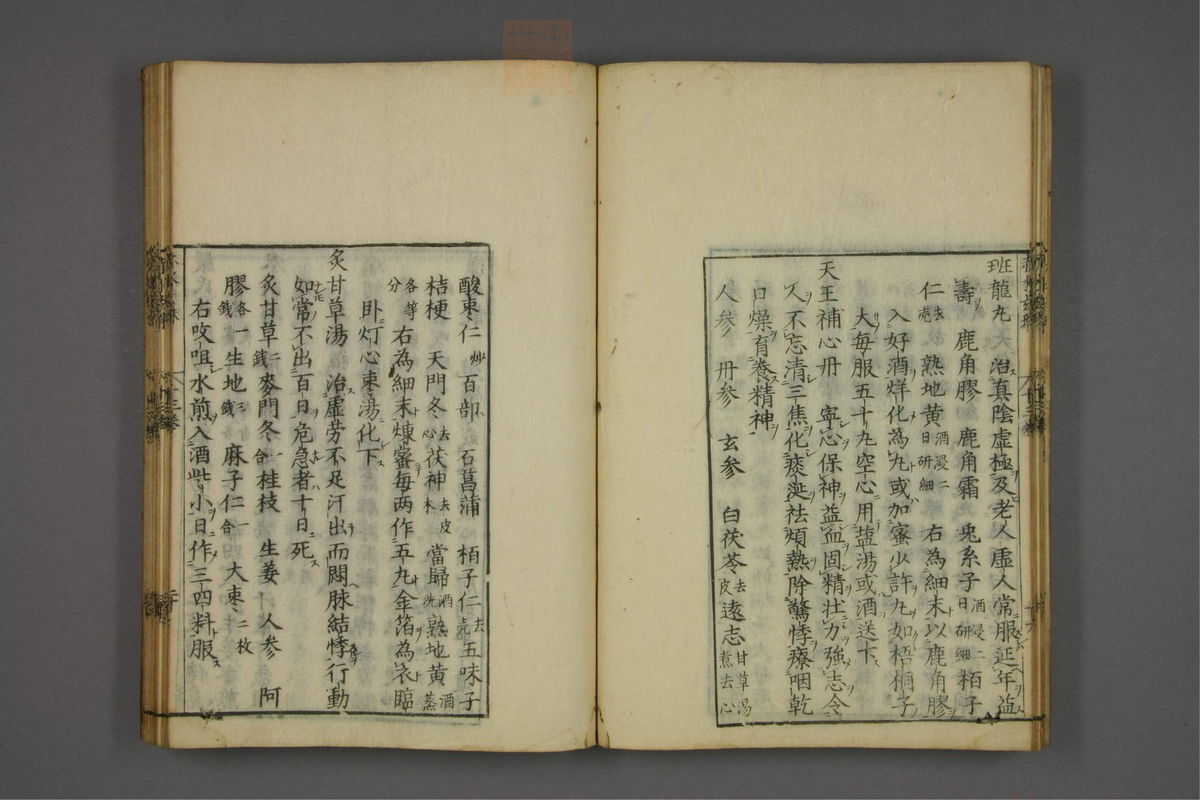 班龍丸 治真陰虛極及老人虛人常服延年益
壽 鹿角膠 鹿角霜 兎糸子酒浸二日研細 栢子
仁去壳 熟地黄酒浸二日研細 右為細末以鹿角膠
入好酒烊化為丸或加蜜少許丸如梧桐子
大每服五十丸空心用塩湯或酒送下
天王補心丹 寧心保神益血固精壮力強志令
人不忘清三焦化痰涎祛煩熱除驚悸療咽乾
口燥育養精神
人参 丹参 玄参 白茯苓去皮 遠志甘草湯煮去心
酸枣仁炒 百部 石菖蒲 栢子仁去壳 五味子
桔梗 天門冬去心 茯神去皮木 當歸酒洗 熟地黄酒蒸
各等分 右為細末煉蜜每両作五丸金箔為衣臨
卧灯心枣湯化下
炙甘草湯 治虛労不足汗出而悶脉結悸行動
如常不出百日危急者十日死
炙甘草二錢 麥門冬一合 桂枝 生姜 人参 阿
膠各一錢 生地三錢 麻子仁一合 大枣二枚
右㕮咀水煎入酒些小日作三四料服